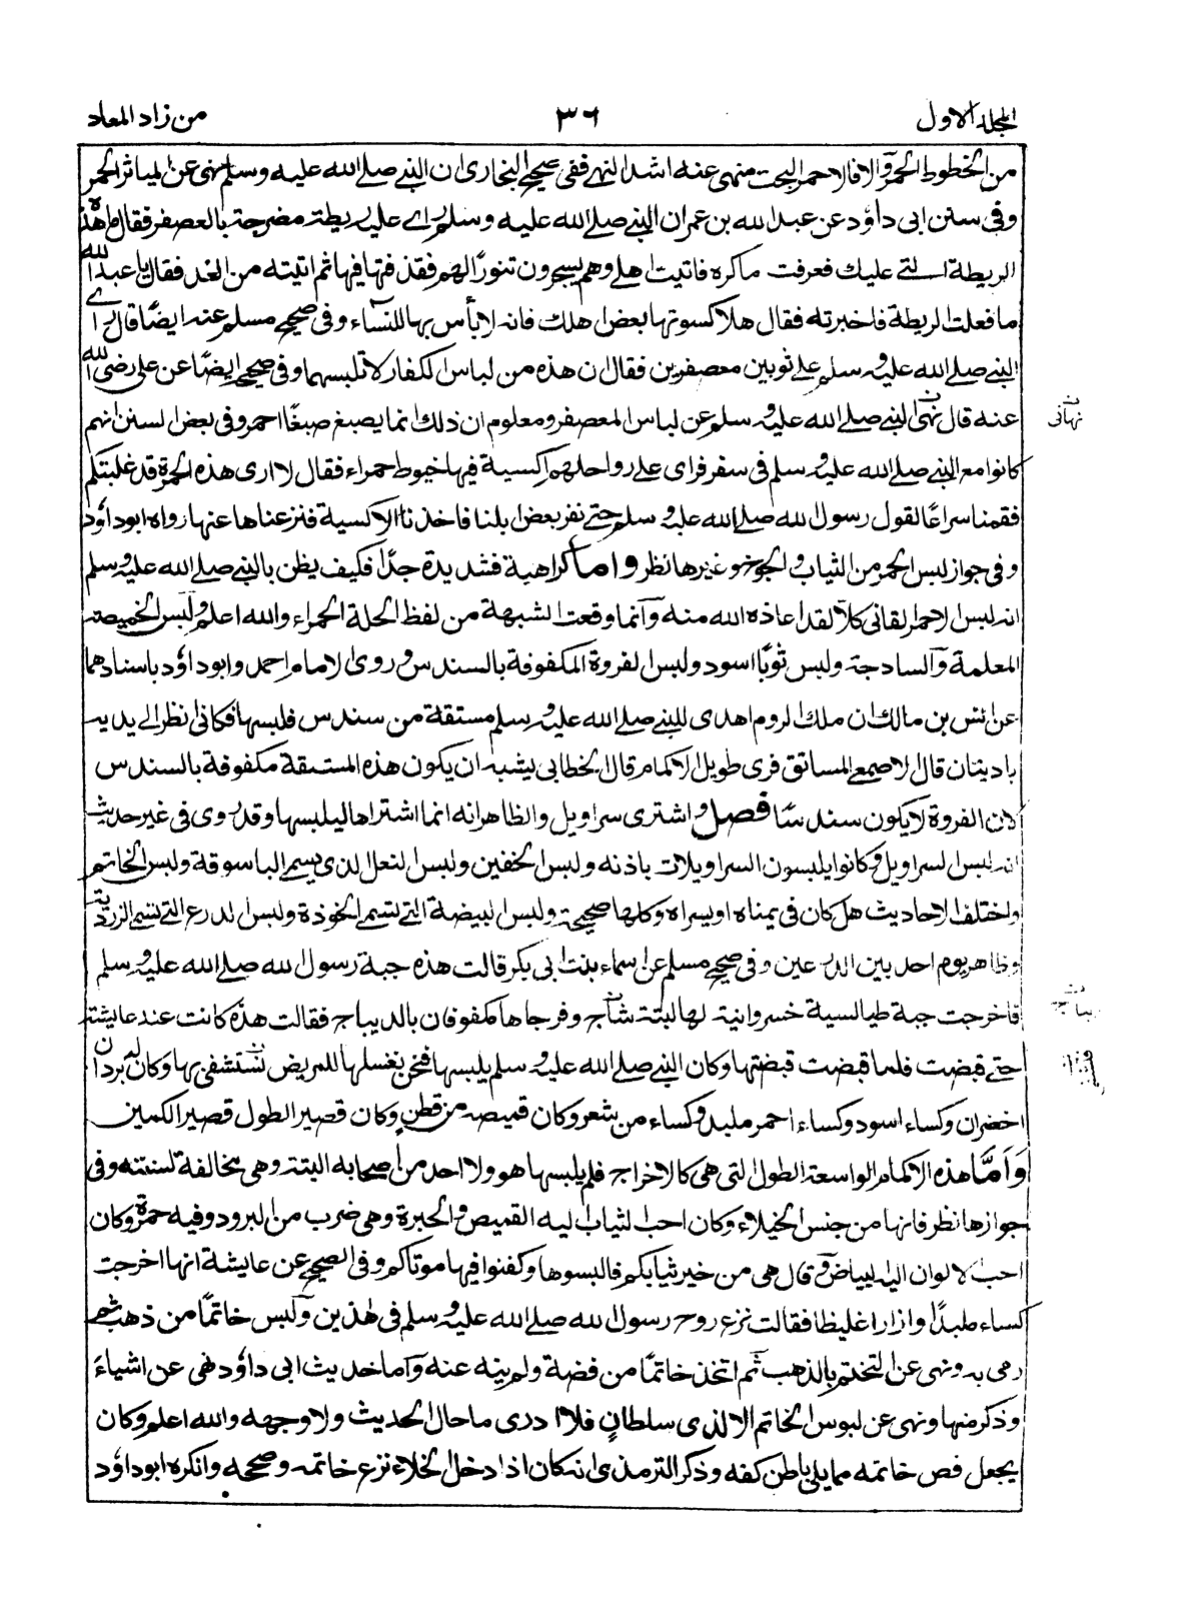 المجلد الاول ٣٦ من زاد المعاد
من الخطوط الحمر والا فالاحمر البحت منهى عنه اشد النهے ففى صحيح البخارى ان النبے صلے الله عليه وسلم نهى عن المياثر الحمر
وفى سنن ابى داؤد عن عبد الله بن عمران النبے صلے الله عليه وسلم راے عليه ريطة مضرجة بالعصفر فقال ما هذه
الريطة التے عليك فعرفت ماكره فاتيت اهلے وهم يسجرون تنورًا لهم فقذفتها فيها ثم اتيته من الغد فقال يا عبد الله
ما فعلت الريطة فاخبرته فقال هلا كسوتها بعض اهلك فانه لا بأس بها للنساء وفى صحيح مسلم عنه ايضًا قال راے
النبے صلے الله عليه وسلم علے ثوبين معصفرين فقال ان هذه من لباس الكفار لا تلبسهما وفى صحيحه ايضًا عن على رضى الله
عنه قال نهى النبے صلے الله عليه وسلم عن لباس المعصفر ومعلوم ان ذلك انما يصبغ صبغًا احمر وفى بعض السنن انهم
كانوا مع النبے صلے الله عليه وسلم فى سفر فراى على رواحلهم اكسية فيها خيوط حمراء فقال لا ارى هذه الحمرة قد غلبتكم
فقمنا سراعًا لقول رسول الله صلے الله عليه وسلم حتے نفر بعض ابلنا فاخذنا الاكسية فنزعناها عنها رواه ابو داؤد
وفى جواز لبس الحمر من الثياب والجوخ وغيرها نظر واما كراهية فشديدة جدًّا فكيف يظن بالنبے صلے الله عليه وسلم
انه لبس الاحمر القانى كلا لقد اعاذه الله منه وانما وقعت الشبهة من لفظ الحلة الحمراء والله اعلم ولبس الخميصة
المعلمة والساذجة ولبس ثوبًا اسود ولبس الفروة المكفوفة بالسندس وروى الامام احمد وابو داؤد باسنادهما
عن انس بن مالك ان ملك الروم اهدى للنبے صلے الله عليه وسلم مستقة من سندس فلبسها فكانى انظر الے يديه
باديتان قال الاصمعے المساتق فرى طويل الاكمام قال الخطابى يشبه ان يكون هذه المستقة مكفوفة بالسندس
لان الفروة لا يكون سندسًا فصل واشترى سراويل والظاهر انه انما اشتراها ليلبسها وقد روى فى غير حديث
انه لبس السراويل وكانوا يلبسون السراويلات باذنه ولبس الخفين ولبس النعل الذى يسمے الباسوقة ولبس الخاتم
واختلف الاحاديث هل كان فى يمناه او يسراه وكلها صحيحة ولبس البيضة التے تسمے الخوذة ولبس الدرع التے تسمے الزردية
وظاهر يوم احد بين الدرعين وفى صحيح مسلم عن اسماء بنت ابى بكر قالت هذه جبة رسول الله صلے الله عليه وسلم
فاخرجت جبة طيالسية خسروانية لها لبتة شاج وفرجاها مكفوفان بالديباج فقالت هذه كانت عند عايشة
حتے قبضت فلما قبضت قبضتها وكان النبے صلے الله عليه وسلم يلبسها فنحن نغسلها للمريض نستشفى بها وكان له بردان
اخضران وكساء اسود وكساء احمر ملبد وكساء من شعر وكان قميصه من قطن وكان قصير الطول قصير الكمين
وَاَمَّا هذه الاكمام الواسعة الطول التى هى كالاخراج فلم يلبسها هو ولا احد من اصحابه البتة وهى مخالفة لسنته وفى
جوازها نظر فانها من جنس الخيلاء وكان احب الثياب اليه القميص والحبرة وهى ضرب من البرود وفيه حمرة وكان
احب الالوان اليه البياض وقال هى من خير ثيابكم فالبسوها وكفنوا فيها موتاكم وفى الصحيح عن عايشة انها اخرجت
كساء ملبدًا وازارا غليظا فقالت نزع روح رسول الله صلے الله عليه وسلم فى هذين ولبس خاتمًا من ذهب ثم
رمى به ونهى عن التختم بالذهب ثم اتخذ خاتمًا من فضة ولم ينه عنه واما حديث ابى داؤد نهى عن اشياء
وذكر منها ونهى عن لبوس الخاتم الا لذى سلطانٍ فلا ادرى ما حال الحديث ولا وجهه والله اعلم وكان
يجعل فص خاتمه مما يلى باطن كفه وذكر الترمذى انه كان اذا دخل الخلاء نزع خاتمه وصححه وانكره ابو داؤد
نهانى